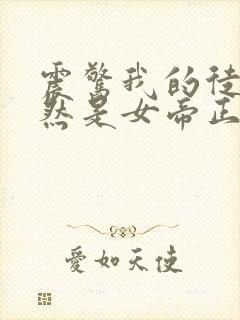 震驚我的徒
然是女帝正
愛如天使